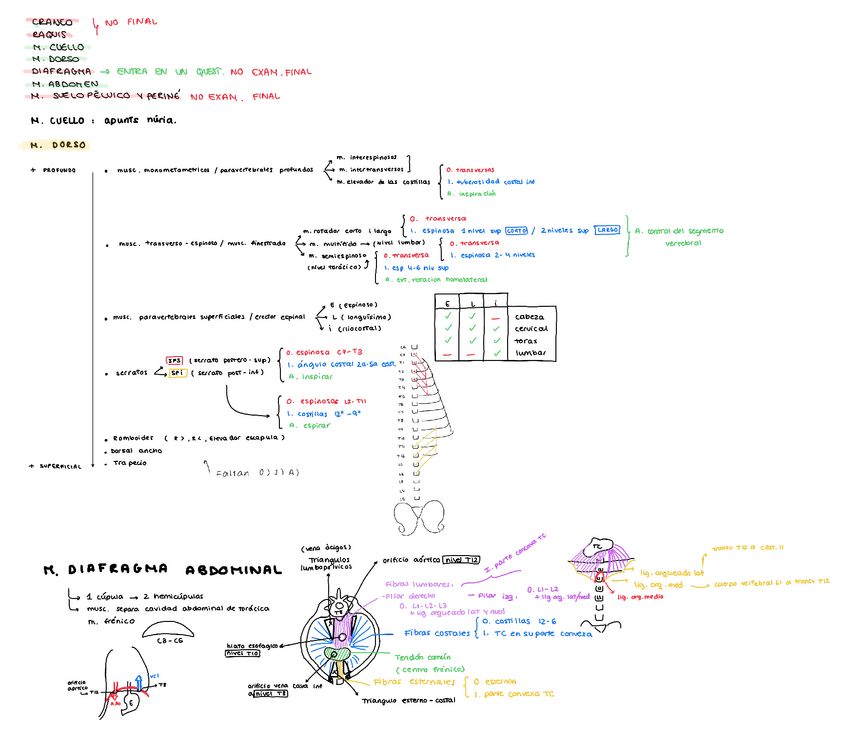 CRANEO
RAQUIS
NO FINAL
M. CUELLO
M. DORSO
DIAFRAGMA → ENTRA EN UN QUEST. NO EXAM. FINAL
M. ABDOMEN
M. SUELO PÉLVICO Y PERINÉ NO EXAM. FINAL
M. CUELLO : apunts núria.
M. DORSO
+ PROFUNDO
• musc. monometametricos / paravertebrales profundos
m. interespinosos
m. intertransversos
m. elevador de las costillas
O. transversas
I. tuberosidad costal inf
A. inspiración
• musc. transverso-espinoso / musc. finestrado
m. rotador corto i largo
O. transversa
I. espinosa 1 nivel sup CORTO / 2 niveles sup LARGO
m. multífido → (nivel lumbar)
O. transversa
I. espinosa 2-4 niveles
m. semiespinoso
(nivel torácico)
O. transversa
I. esp 4-6 niv sup
A. ext, rotación homolateral
A. control del segmento
vertebral
• musc. paravertebrales superficiales / erector espinal
E (Espinoso)
L (longuísimo)
i (iliocostal)
E L i
✓ ✓ — cabeza
✓ ✓ ✓ cervical
✓ ✓ ✓ torax
— — ✓ lumbar
• serratos
SPS (serrato postero-sup)
O. espinosa C7-T3
I. ángulo costal 2a-5a cost.
A. inspirar
SPi (serrato post-inf)
O. espinosas L2-T11
I. costillas 12º-9º
A. espirar
• Romboides ( R>, R<, Elevador escapula )
• Dorsal ancho
• Trapecio
+ SUPERFICIAL
Faltan O) I) A)
M. DIAFRAGMA ABDOMINAL
1 cúpula → 2 hemicúpulas
musc. separa cavidad abdominal de torácica
m. frénico
C3-C5
orificio
aórtico
T12
VCI
T8
E
(vena ácigos)
Triangulos
lumbopélvicos
orificio aórtico nivel T12
I. parte concava TC
Fibras lumbares.
-Pilar derecho
O. L1-L2-L3
+ lig arqueado lat y med
- Pilar izq.
O. L1-L2
+ lig arq. lat/med
Fibras costales
O. costillas 12-6
I. TC en su parte convexa
hiato esofágico
nivel T10
Tendón común
(centro frénico)
orificio vena cava inf
nivel T8
Fibras esternales
O. esternon
I. parte convexa TC
Triangulo esterno-costal
TC
lig. arqueado lat
transv T12 a cost. 11
lig. arq. med
cuerpo vertebral L1 a transv T12
lig. arq. medio